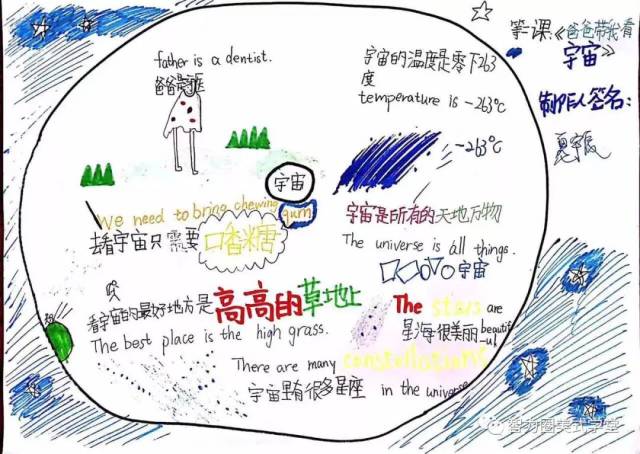 father is a dentist.
爸爸是牙医
宇宙的温度是零下263
度
temperature is -263℃
-263℃
第一课《爸爸带我看
宇宙》
制作人签名:
宇宙
We need to bring chewing gum
去看宇宙只需要口香糖
宇宙是所有的天地万物
The universe is all things.
宇宙
看宇宙的最好地方是高高的草地上
The best place is the high grass.
The stars are
beautiful
星海很美丽
There are many constellations
宇宙里有很多星座 in the universe